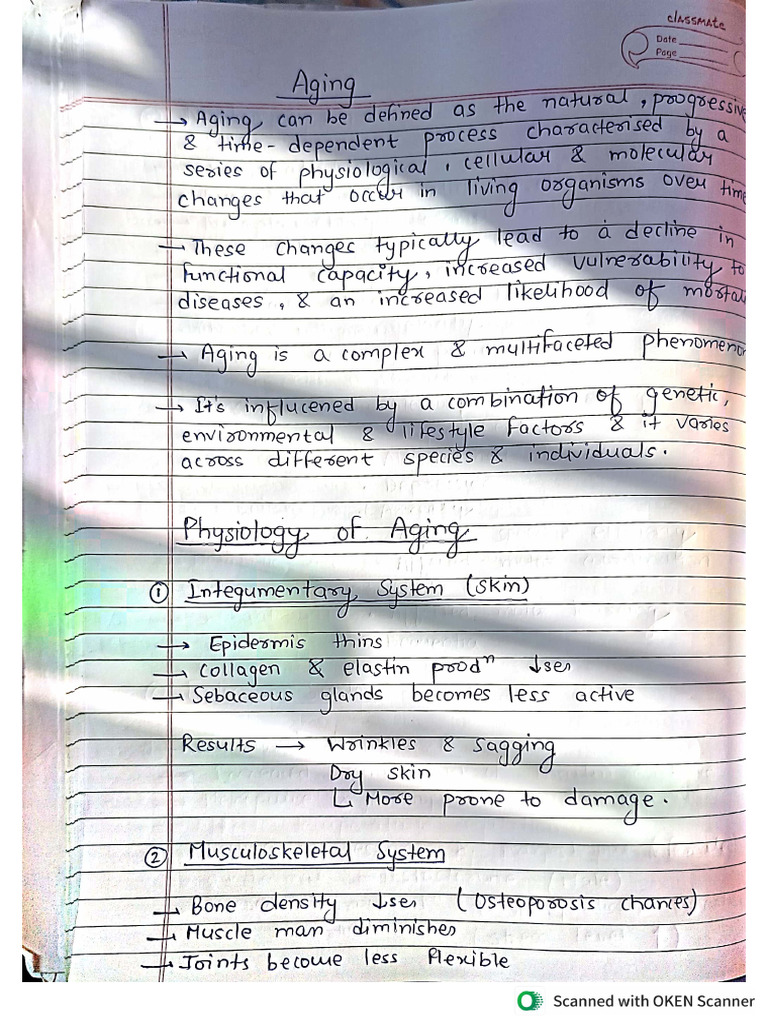 classmate
Date
Page
Aging
→ Aging can be defined as the natural, progressive
& time-dependent process characterised by a
series of physiological, cellular & molecular
changes that occur in living organisms over time
→ These changes typically lead to a decline in
functional capacity, increased vulnerability to
diseases, & an increased likelihood of mortali
→ Aging is a complex & multifaceted phenomenon
→ It's influcened by a combination of genetic,
environmental & lifestyle factors & it varies
across different species & individuals.
Physiology of Aging
① Integumentary System (skin)
→ Epidermis thins
→ Collagen & elastin prodⁿ ↓ses
→ Sebaceous glands becomes less active
Results → Wrinkles & sagging
Dry skin
↳ More prone to damage.
② Musculoskeletal System
→ Bone density ↓ses (Osteoporosis chances)
→ Muscle mass diminishes
→ Joints become less flexible
Scanned with OKEN Scanner